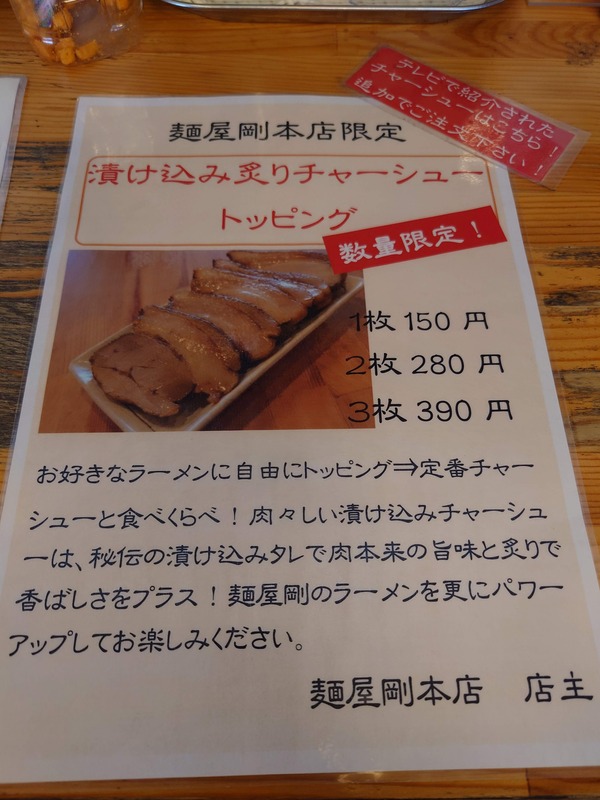 テレビで紹介された
チャーシューはこちら！
追加でご注文下さい！
麺屋剛本店限定
漬け込み炙りチャーシュー
トッピング
数量限定！
1枚 150 円
2枚 280 円
3枚 390 円
お好きなラーメンに自由にトッピング⇒定番チャー
シューと食べくらべ！肉々しい漬け込みチャーシュ
ーは、秘伝の漬け込みタレで肉本来の旨味と炙りで
香ばしさをプラス！麺屋剛のラーメンを更にパワー
アップしてお楽しみください。
麺屋剛本店　店主